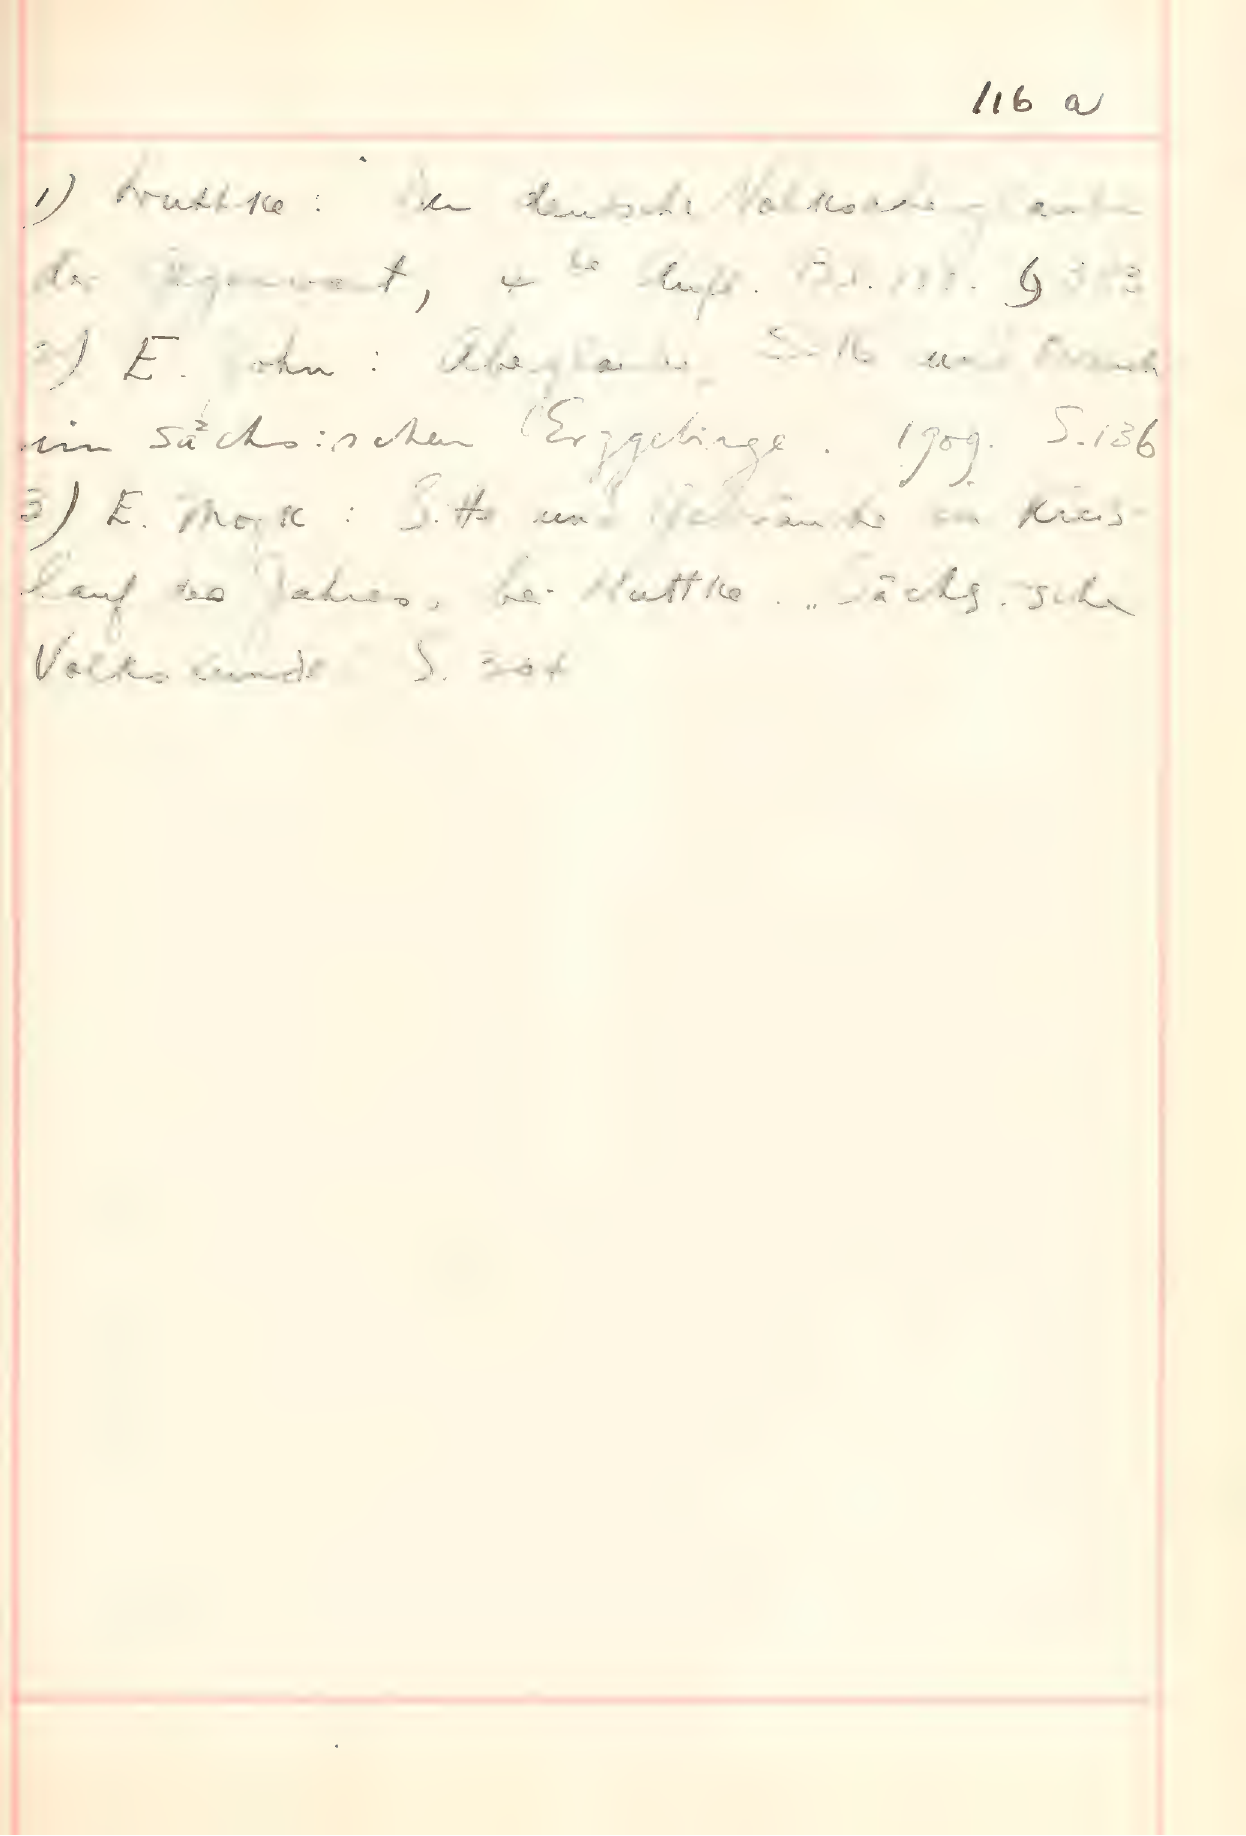 116 a
1) Wuttke: Der deutsche Volksaberglaube
der Gegenwart, 4te Aufl. §
2) E. John: Aberglaube, Sitte und Brauch
im sächsischen Erzgebirge. 1909. S.136
3) E. Mogk: Sitte und Gebräuche im Kreis-
lauf des Jahres, bei Wuttke „Sächsische
Volkskunde S.